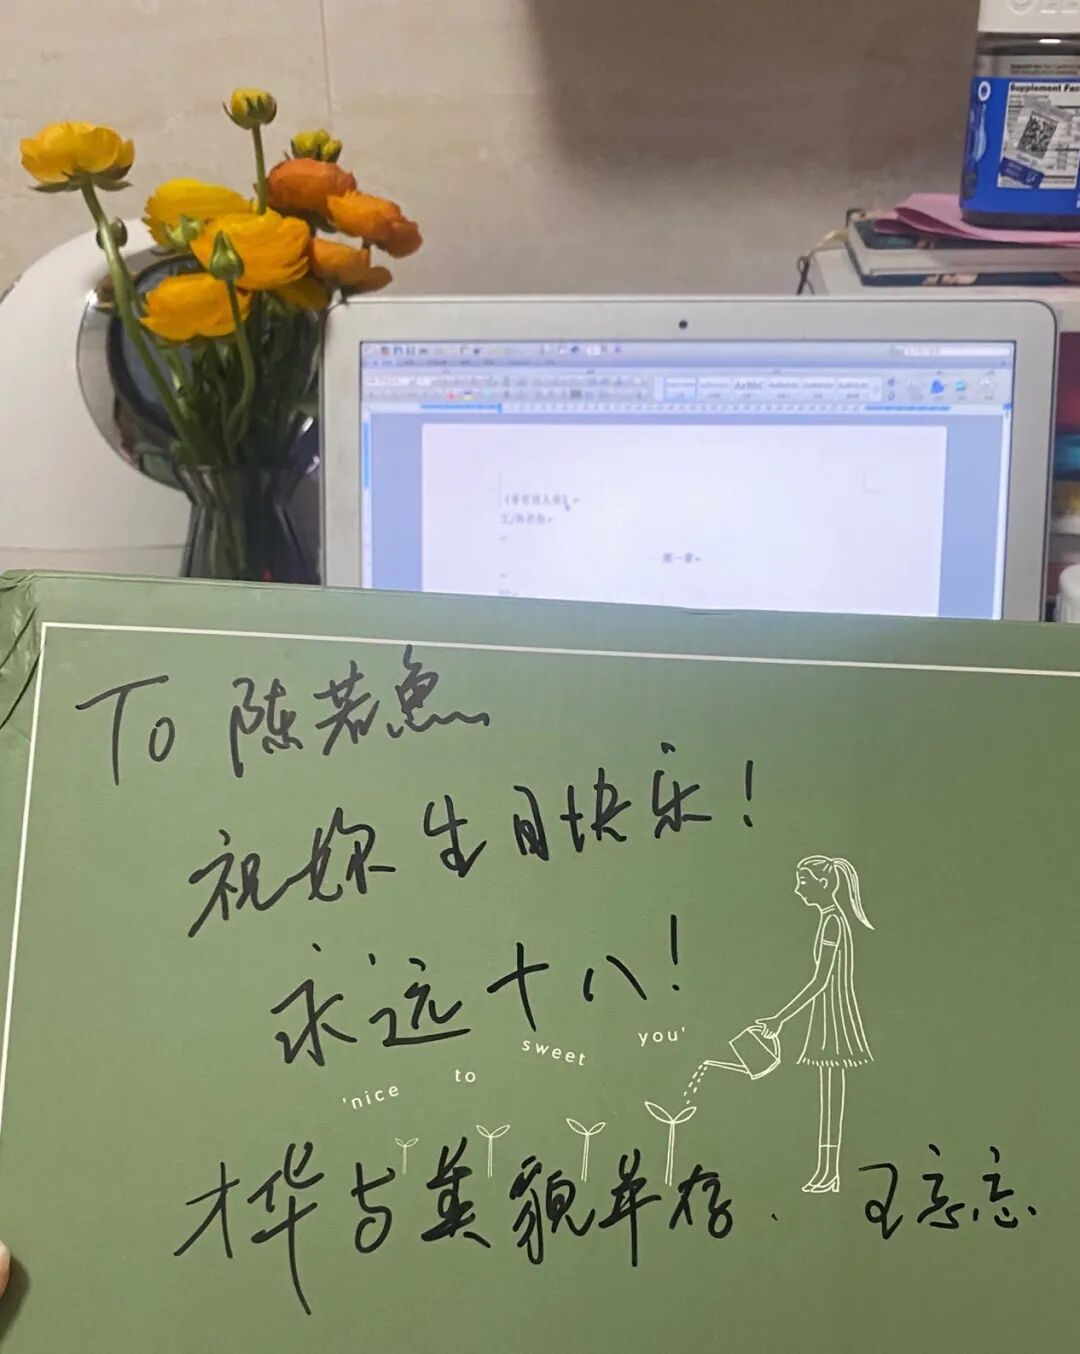 Supplement Fac
第一章
To 陈若鱼
祝你生日快乐！
永远十八！
'nice to sweet you'
才华与美貌并存.
王忘忘